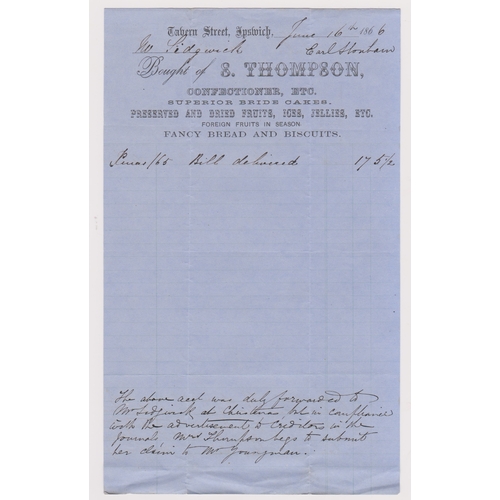 Tavern Street, Ipswich, June 16th 1866
Mr Sidgwick Earl Stonham
Bought of S. THOMPSON,
CONFECTIONER, ETC.
SUPERIOR BRIDE CAKES,
PRESERVED AND DRIED FRUITS, ICES, JELLIES, ETC.
FOREIGN FRUITS IN SEASON.
FANCY BREAD AND BISCUITS.
Xmas/65 Bill delivered 17 5½
The above acct was duly forwarded to
Mr Sidgwick at Christmas, but in compliance
with the advertisement to Creditors in the
Journals, Mrs Thompson begs to submit
her claim to Mr Youngman.